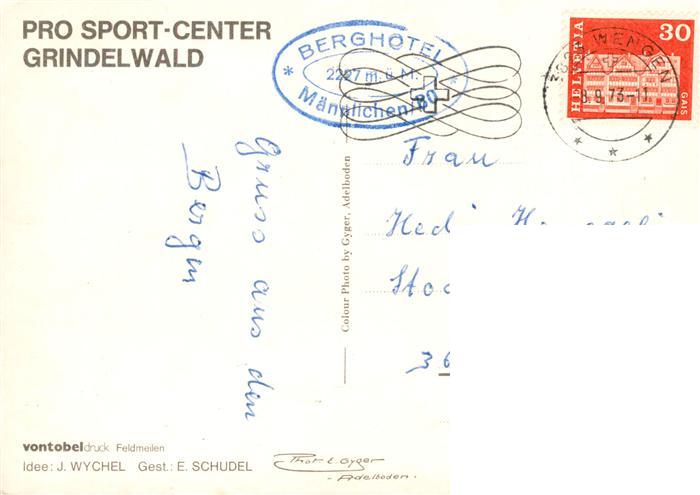 PRO SPORT-CENTER
GRINDELWALD
BERGHOTEL
2227 m. ü. M.
Männlichen/BO
HELVETIA
30
GAIS
WENGEN
9.73-11
Gruss aus den
Bergen
Frau
Hedi
Colour Photo by Gyger, Adelboden
vontobeldruck Feldmeilen
Idee: J. WYCHEL Gest.: E. SCHUDEL
Phot. E. Gyger
- Adelboden.